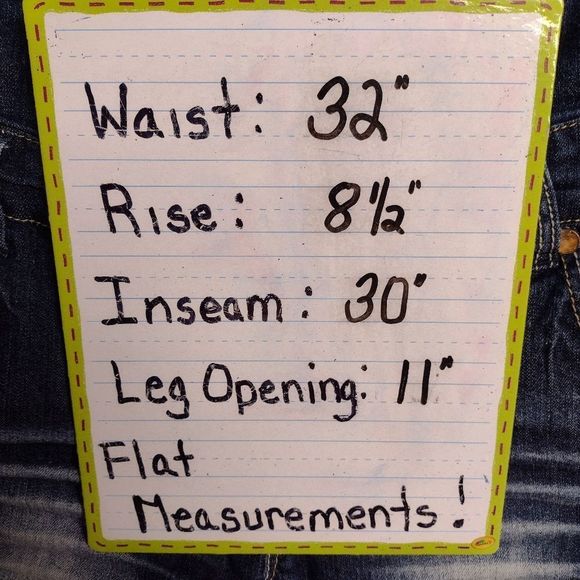 Waist: 32"
Rise: 8 1/2"
Inseam: 30"
Leg Opening: 11"
Flat
Measurements!